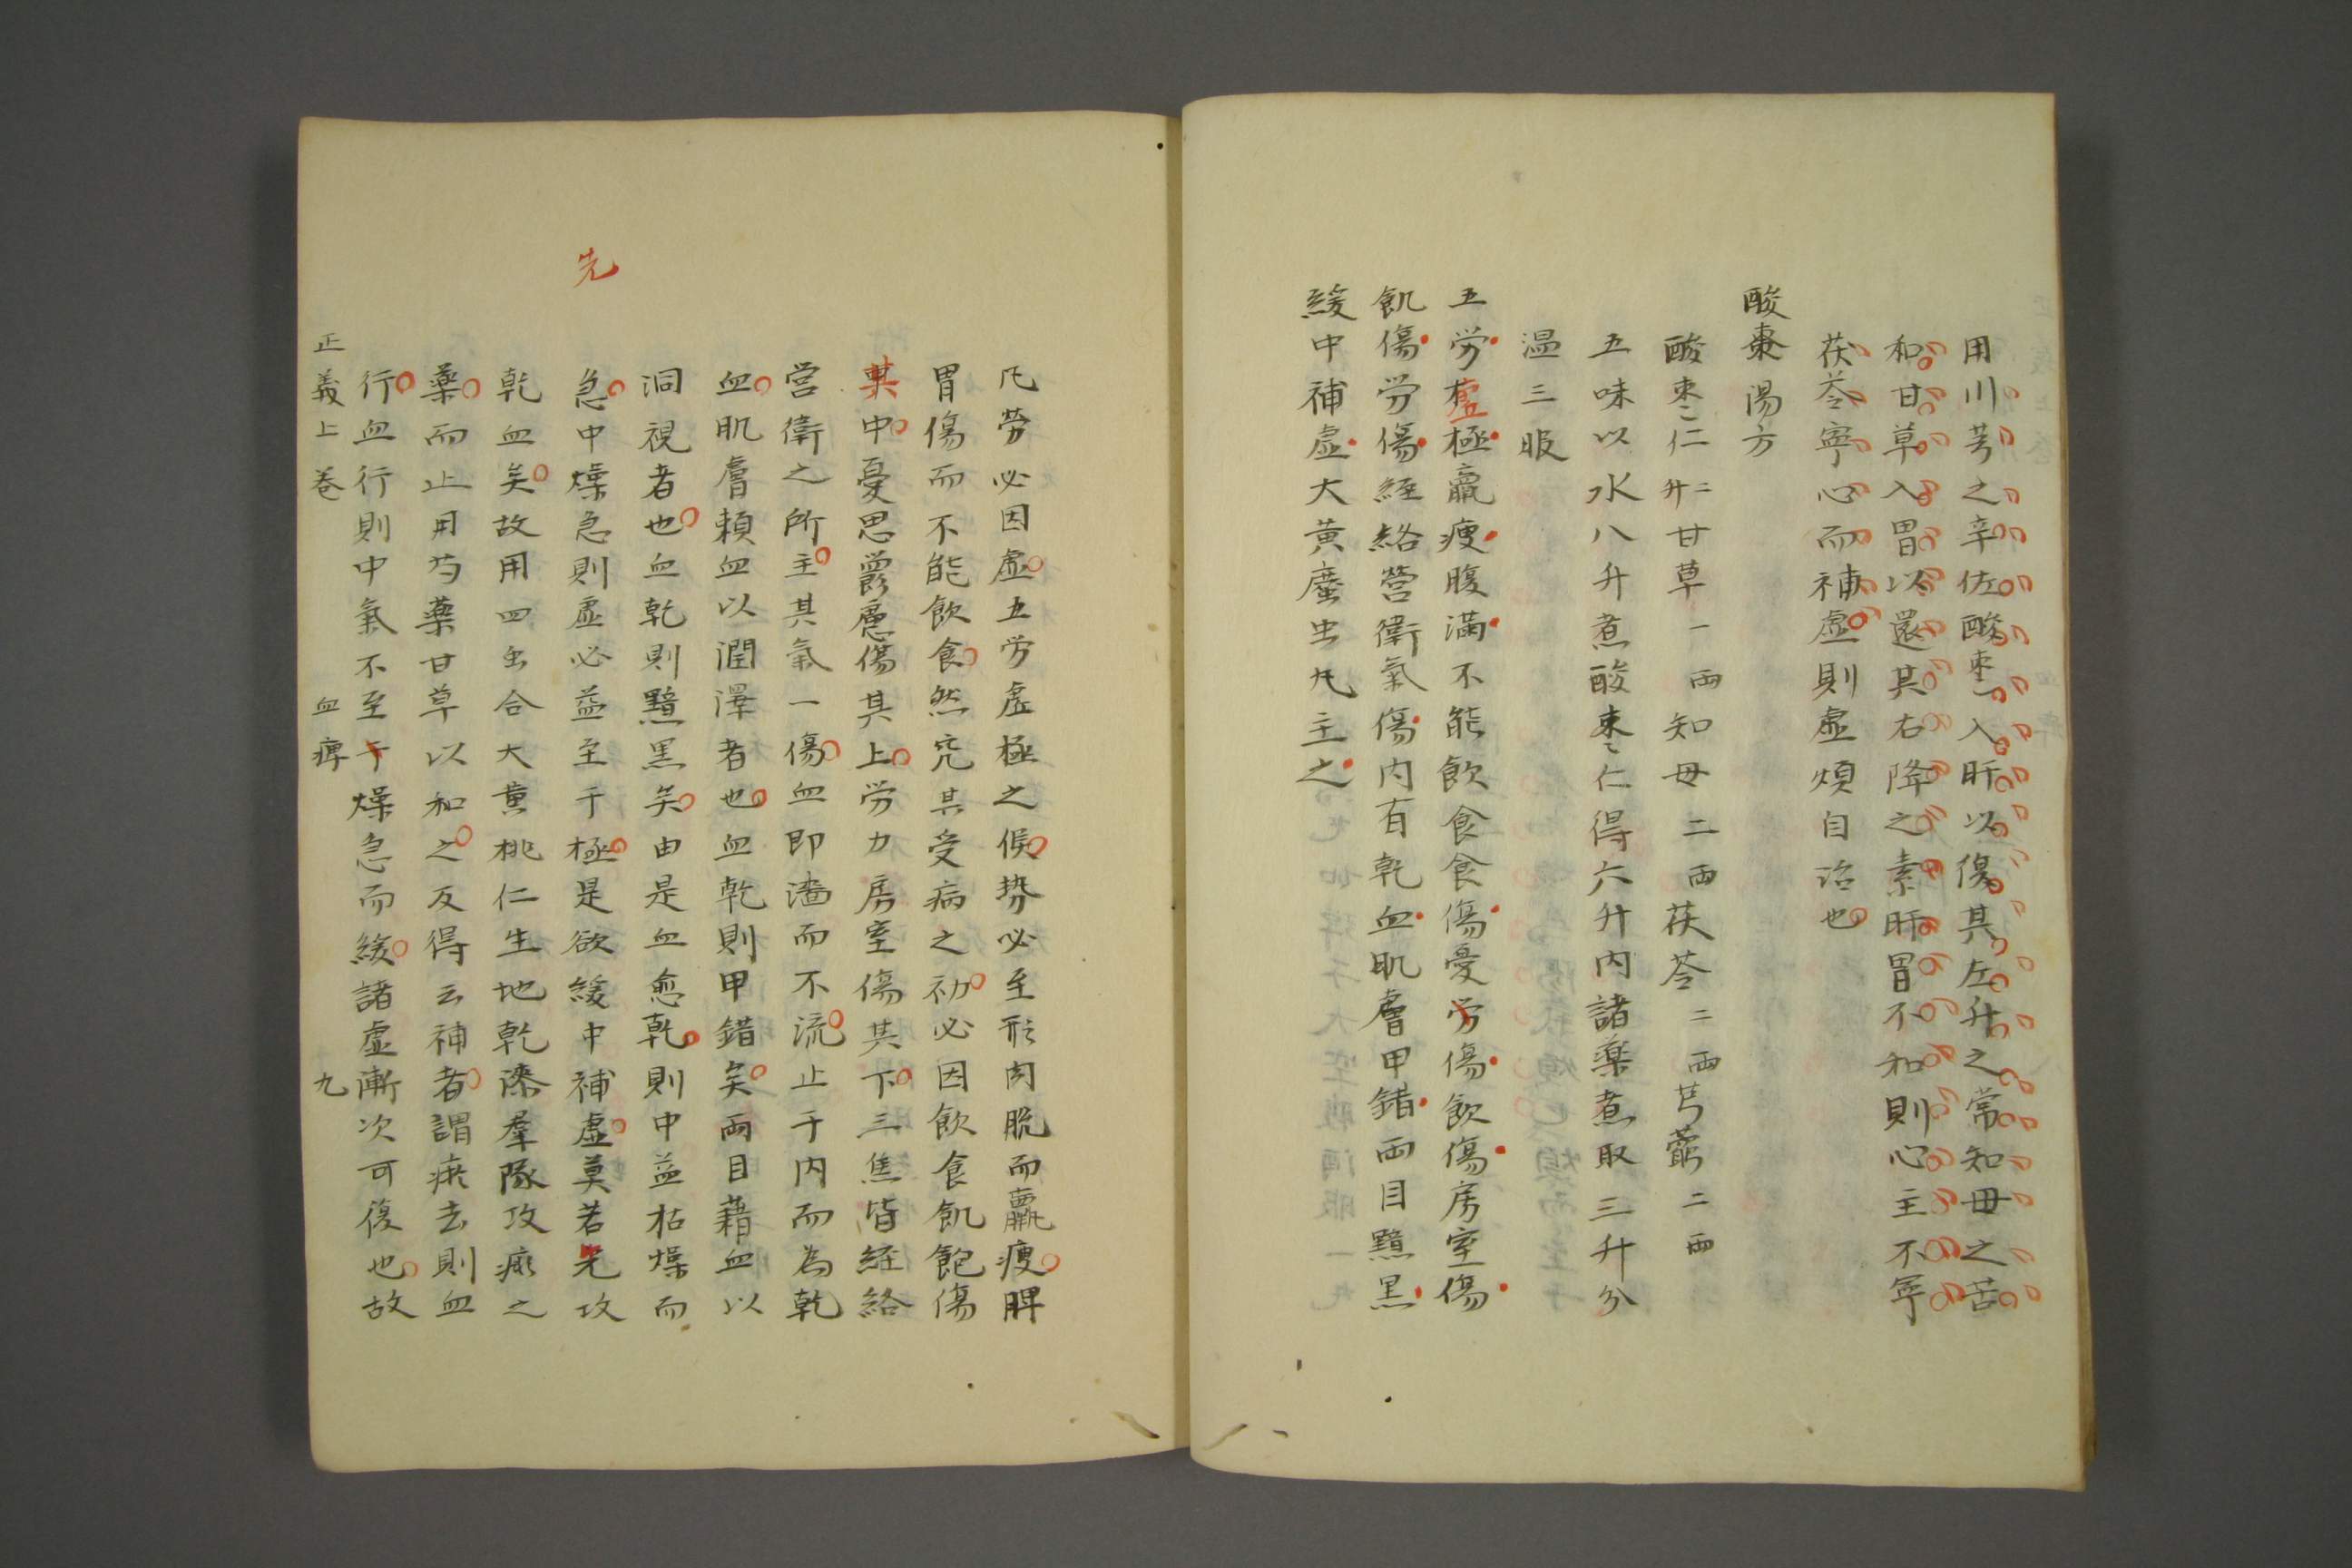 用川芎之辛佐酸枣入肝以復其左升之常知母之苦
和甘草入胃以還其右降之素肝胃不和則心主不寧
茯苓寧心而補虛則虛煩自治也
酸棗湯方
酸枣仁二升甘草一兩知母二兩茯苓二兩芎藭二兩
五味以水八升煮酸枣仁得六升內諸藥煮取三升分
温三服
五労虛極羸瘦腹滿不能飲食食傷憂労傷飲傷房室傷
飢傷労傷経絡營衛氣傷内有乾血肌膚甲錯両目黯黒
緩中補虛大黄䗪虫丸主之
先
凡勞必因虛五労虛極之候勢必至形肉脱而羸瘦脾
胃傷而不能飲食然究其受病之初必因飲食飢飽傷
其中憂思鬱慮傷其上労力房室傷其下三焦皆経絡
營衛之所主其氣一傷血即濇而不流止于内而為乾
血肌膚頼血以潤澤者也血乾則甲錯矣両目藉血以
洞視者也血乾則黯黒矣由是血愈乾則中益枯燥而
急中燥急則虛必益至于極是欲緩中補虛莫若先攻
乾血矣故用四虫合大黄桃仁生地乾漆羣隊攻瘀之
藥而止用芍藥甘草以和之反得云補者謂瘀去則血
行血行則中氣不至干燥急而緩諸虛漸次可復也故
正義上卷 血痺 九